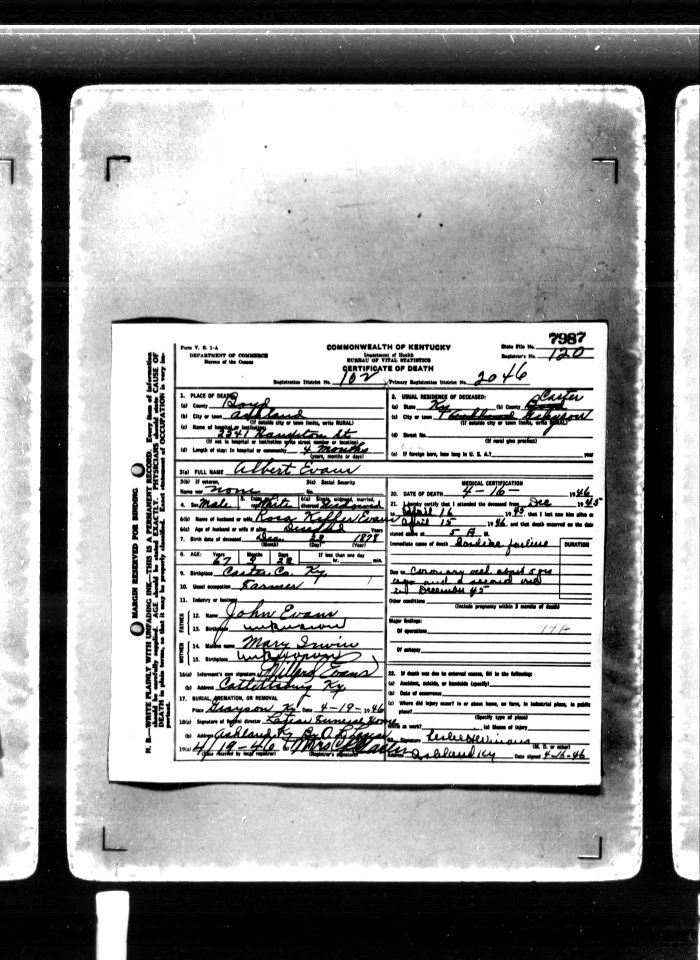 Form V. S. 1-A
DEPARTMENT OF COMMERCE
Bureau of the Census
COMMONWEALTH OF KENTUCKY
Department of Health
BUREAU OF VITAL STATISTICS
CERTIFICATE OF DEATH
State File No. 7987
Registrar's No. 120
Registration District No. 102 Primary Registration District No. 2046
MARGIN RESERVED FOR BINDING
N. B.—WRITE PLAINLY WITH UNFADING INK—THIS IS A PERMANENT RECORD. Every item of information
should be carefully supplied. AGE should be stated EXACTLY. PHYSICIANS should state CAUSE OF
DEATH in plain terms, so that it may be properly classified. Exact statement of OCCUPATION is very im-
portant.
1. PLACE OF DEATH
(a) County Boyd
(b) City or town Ashland
(If outside city or town limits, write RURAL)
(c) Name of hospital or institution:
2341 St
(If not in hospital or institution write street number or location)
(d) Length of stay: In hospital or community 4 months
(years, months or days)
3(a) FULL NAME Albert Evans
3(b) If veteran,
Name war none
3(c) Social Security
No.
4. Sex Male 5. Color or race White 6(a) Single, widowed, married, divorced Widowed
6(b) Name of husband or wife Rosa Evans
6(c) Age of husband or wife if alive Deceased Years
7. Birth date of deceased Dec 23 1878
(Month) (Day) (Year)
8. AGE: Years Months Days If less than one day
67 3 23 hr. min.
9. Birthplace Carter Co. Ky.
10. Usual occupation Farmer
11. Industry or business
FATHER
12. Name John Evans
13. Birthplace unknown
MOTHER
14. Maiden name Mary Irwin
15. Birthplace unknown
16(a) Informant's own signature Willard Evans
(b) Address Catlettsburg Ky.
17. BURIAL, CREMATION, OR REMOVAL
Place Grayson, Ky Date 4-19-1946
18(a) Signature of funeral director Funeral Home
(b) Address Ashland, Ky By
19(a) 4/19-46 (b) Mrs
(Date received by local registrar) (Registrar's signature)
2. USUAL RESIDENCE OF DECEASED:
(a) State Ky (b) County Carter
(c) City or town Ashland
(If outside city or town limits, write RURAL)
(d) Street No.
(If rural give precinct)
(e) If foreign born, how long in U. S. A.? year
MEDICAL CERTIFICATION
20. DATE OF DEATH 4-16- 1946
21. I hereby certify that I attended the deceased from Dec 1945
to April 16 1945, that I last saw him alive on
April 15 1946, and that death occurred on the date
stated above at 5 A M.
Immediate cause of death Cardiac failure
DURATION
Due to Coronary occl. about 5 yrs
ago and a second one
in December 45
Other conditions
(Include pregnancy within 3 months of death)
Major findings:
Of operations
Of autopsy
22. If death was due to external causes, fill in the following:
(a) Accident, suicide, or homicide (specify)
(b) Date of occurrence
(c) Where did injury occur? In or about home, on farm, in industrial place, in public
place?
(Specify type of place)
While at work? (e) Means of injury
23. Signature Leslie
(M. D. or other)
Address Ashland Ky Date signed 4-16-46